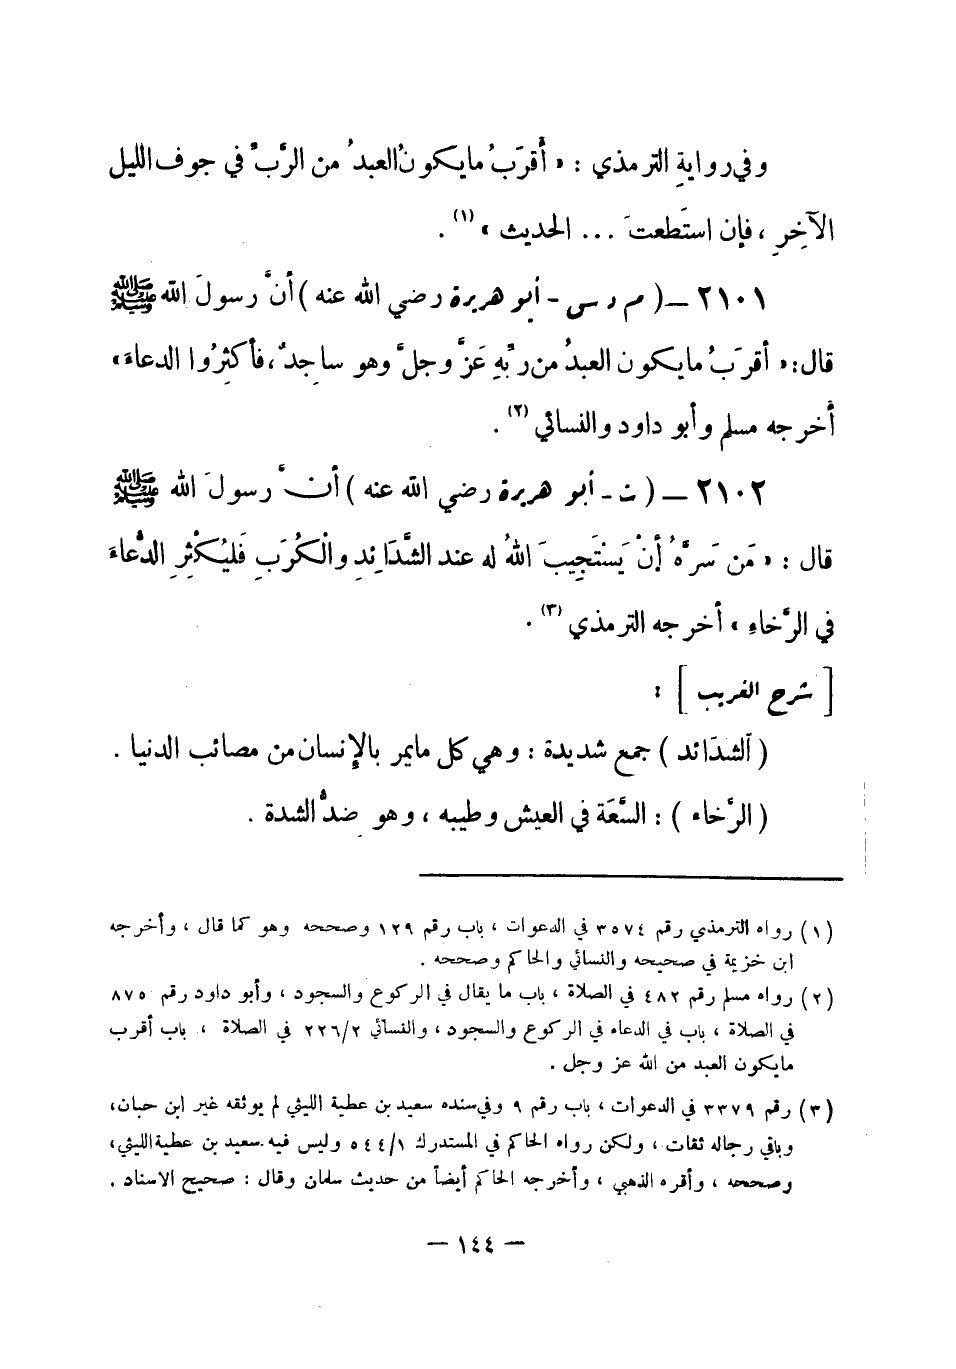 وفي رواية الترمذي : « أقرَبُ ما يكونُ العبدُ من الرَّبِّ في جوف الليل
الآخِرِ ، فإن استَطعتَ ... الحديث » (١) .
٢١٠١ – ( م د س - أبو هريرة رضي الله عنه ) أنَّ رسولَ الله ﷺ
قال : « أقرَبُ ما يكون العبدُ من ربِّهِ عَزَّ وجلَّ وهو ساجِدٌ ، فأكثِرُوا الدعاءَ »
أخرجه مسلم وأبو داود والنسائي (٢) .
٢١٠٢ – ( ت - أبو هريرة رضي الله عنه ) أنَّ رسولَ الله ﷺ
قال : « مَن سَرَّهُ أنْ يَسْتَجِيبَ اللهُ له عند الشَّدَائِدِ والْكُرَبِ فَليُكْثِرِ الدُّعاءَ
في الرَّخاءِ » أخرجه الترمذي (٣) .
[ شرح الغريب ] :
( الشدَائد ) جمع شديدة : وهي كل ما يمر بالإنسان من مصائب الدنيا .
( الرَّخاء ) : السَّعَة في العيش وطيبه ، وهو ضدُّ الشدة .
(١) رواه الترمذي رقم ٣٥٧٤ في الدعوات ، باب رقم ١٢٩ وصححه وهو كما قال ، وأخرجه
ابن خزيمة في صحيحه والنسائي والحاكم وصححه .
(٢) رواه مسلم رقم ٤٨٢ في الصلاة ، باب ما يقال في الركوع والسجود ، وأبو داود رقم ٨٧٥
في الصلاة ، باب في الدعاء في الركوع والسجود ، والنسائي ٢٢٦/٢ في الصلاة ، باب أقرب
ما يكون العبد من الله عز وجل .
(٣) رقم ٣٣٧٩ في الدعوات ، باب رقم ٩ وفي سنده سعيد بن عطية الليثي لم يوثقه غير ابن حبان،
وباقي رجاله ثقات ، ولكن رواه الحاكم في المستدرك ٥٤٤/١ وليس فيه سعيد بن عطية الليثي،
وصححه ، وأقره الذهبي ، وأخرجه الحاكم أيضاً من حديث سلمان وقال : صحيح الاسناد .
– ١٤٤ –